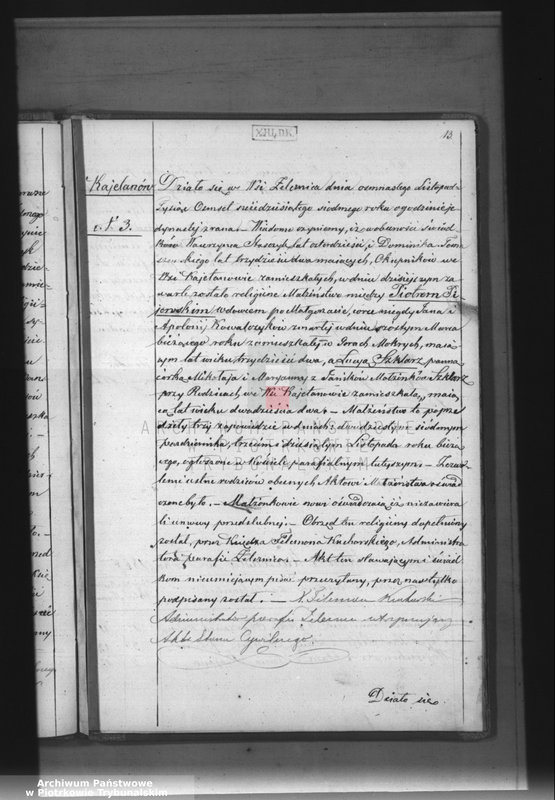 XIII, DK.
13
Kajetanów
№ 3.
Działo się we Wsi Żeleźnica dnia osmnastego Listopada
Tysiąc Osmset sześćdziesiątego siodmego roku o godzinie je-
dynastej z rana. Wiadomo czyniemy, iż w obecności świad-
ków Wawrzyńca lat czterdzieści, i Dominika
lat trzydzieści dwa maiących, Okupników we
Wsi Kajetanowie zamieszkałych, w dniu dzisiejszym za-
warte zostało religijne Małżeństwo między Piotrem
wdowcem po Małgorzacie, córce niegdy Jana i
Apolonij Kowalczyków zmarłej w dniu szostym Marca
bieżącego roku zamieszkałym w Gorach Mokrych, maią-
cym lat wieku trzydzieści dwa, a Łucyą Szklarz panną
córką Mikołaja i Maryanny z Taników Małżonków Szklarz
przy Rodzicach, we Wsi Kajetanowie zamieszkałą, maią-
cą lat wieku dwadzieścia dwa. Małżeństwo to poprze-
dziły trzy zapowiedzie w dniach: dwudziestym siodmym
października, trzecim i dziesiątym Listopada roku bieżą-
cego, ogłoszone w Kościele parafialnym tutejszym. Zezwo-
lenie ustne rodziców obecnych Aktowi Małżeństwa oświad-
czone było. Małżonkowie nowi oświadczają iż niezawiera-
li umowy przedślubnej. Obrzęd ten religijny dopełniony
został, przez Księdza Filemona Administra-
tora parafii Żeleźnica. Akt ten stawającym i świad-
kom nieumiejącym pisać przeczytany, przez nas tylko
podpisany został. X. Filemon
Administrator parafii Żeleźnica utrzymujący
Akta Stanu Cywilnego.
Działo się.
Archiwum Państwowe
w Piotrkowie Trybunalskim